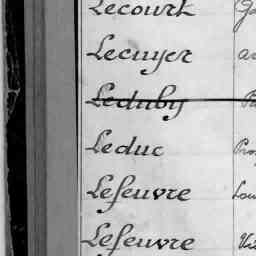 Lecourt
Lecuyer
Leduby
Leduc
Lefeuvre Lou
Lefeuvre